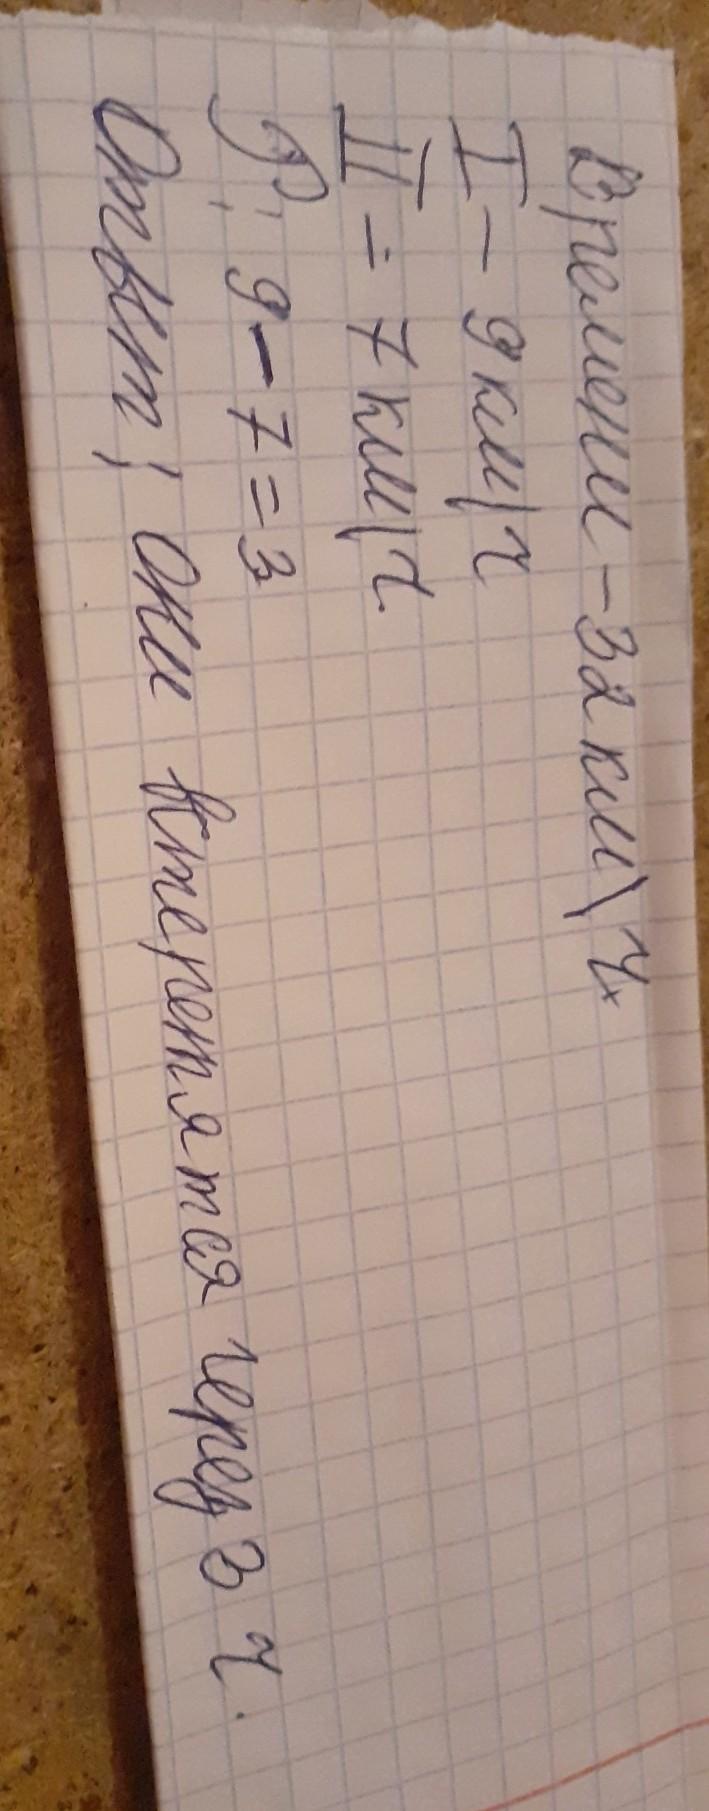 Времени - 32 км\ч
I - 9 км/ч
II - 7 км/ч.
Р; 9-7=3
Ответ; они втеретятся через 3 ч.